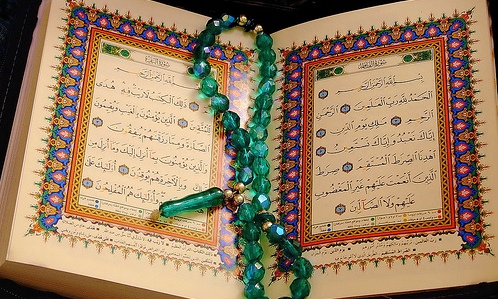 سُورَةُ الْفَاتِحَةِ
بِسْمِ اللَّهِ الرَّحْمَٰنِ الرَّحِيمِ
الْحَمْدُ لِلَّهِ رَبِّ الْعَالَمِينَ الرَّحْمَٰنِ
الرَّحِيمِ مَلِكِ يَوْمِ الدِّينِ
إِيَّاكَ نَعْبُدُ وَإِيَّاكَ نَسْتَعِينُ
اهْدِنَا الصِّرَاطَ الْمُسْتَقِيمَ صِرَاطَ
الَّذِينَ أَنْعَمْتَ عَلَيْهِمْ غَيْرِ الْمَغْضُوبِ
عَلَيْهِمْ وَلَا الضَّالِّينَ
سُورَةُ الْبَقَرَةِ
بِسْمِ اللَّهِ الرَّحْمَٰنِ الرَّحِيمِ
ذَٰلِكَ الْكِتَابُ لَا رَيْبَ فِيهِ هُدًى
لِلْمُتَّقِينَ الَّذِينَ يُؤْمِنُونَ بِالْغَيْبِ وَيُقِيمُونَ
الصَّلَوٰةَ وَمِمَّا رَزَقْنَاهُمْ يُنْفِقُونَ
وَالَّذِينَ يُؤْمِنُونَ بِمَا أُنْزِلَ إِلَيْكَ وَمَا أُنْزِلَ مِنْ
قَبْلِكَ وَبِالْآخِرَةِ هُمْ يُوقِنُونَ أُولَٰئِكَ عَلَىٰ
وَأُولَٰئِكَ هُمُ الْمُفْلِحُونَ